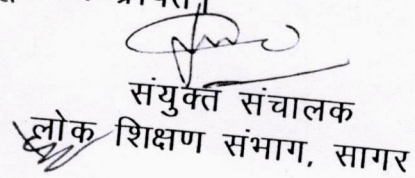 संयुक्त संचालक
लोक शिक्षण संभाग, सागर